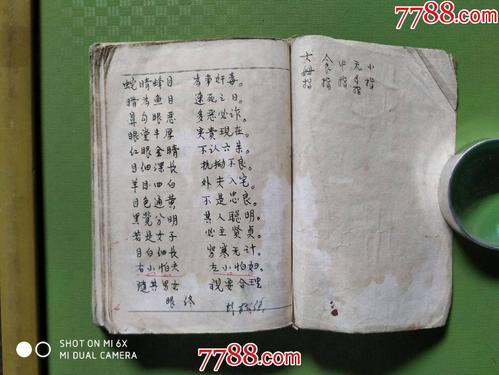 7788.com
蛇睛蜂目 为事奸毒。
睛为鱼目 速死之日。
鼻勾眼恶 多恶必诈。
眼堂丰厚 实贵现在。
红眼金睛 不认六亲。
目细深长 执拗不良。
羊目四白 外夫入宅。
目色通黄 不是忠良。
黑莺分明 其人聪明。
若是女子 必主贤贞。
目白细长 穷寒无计。
右小怕夫 左小怕妇。
男女 视要合理
眼
大姆指
食指
中指
无名指
小指
SHOT ON MI 6X
MI DUAL CAMERA
7788.com